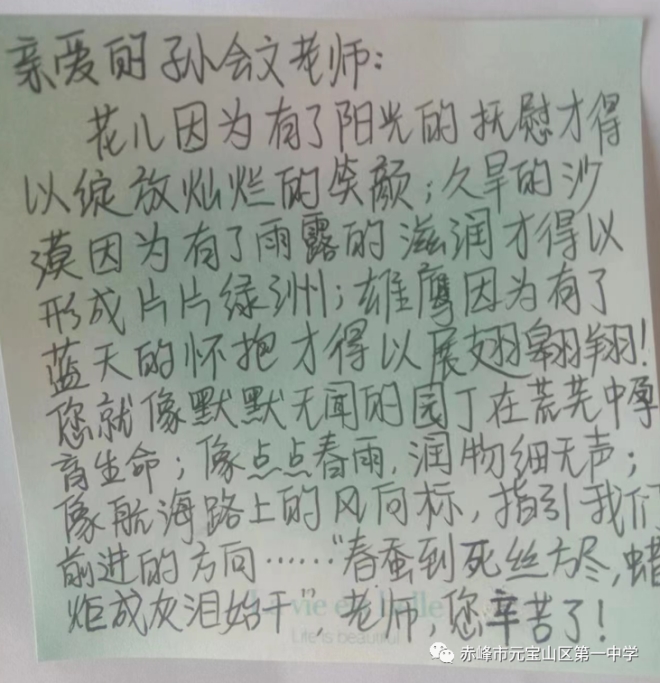 亲爱的孙会文老师:
花儿因为有了阳光的抚慰才得
以绽放灿烂的笑颜;久旱的沙
漠因为有了雨露的滋润才得以
形成片片绿洲;雄鹰因为有了
蓝天的怀抱才得以展翅翱翔!
您就像默默无闻的园丁在荒芜中孕
育生命;像点点春雨,润物细无声;
像航海路上的风向标,指引我们
前进的方向……“春蚕到死丝方尽,蜡
炬成灰泪始干”,老师,您辛苦了!
la vie est belle
Life is beautiful
赤峰市元宝山区第一中学